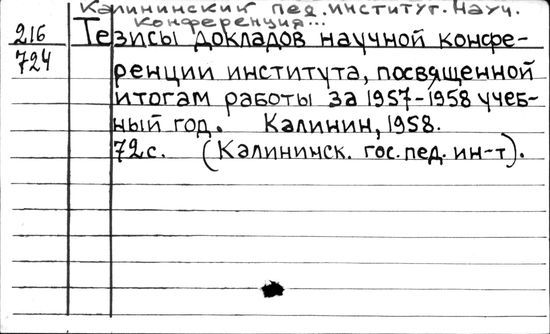 Калининский пед. институт. Науч.
конференция...
216
724
Тезисы докладов научной конфе-
ренции института, посвященной
итогам работы за 1957-1958 учеб-
ный год. Калинин, 1958.
72с. (Калининск. гос. пед. ин-т).